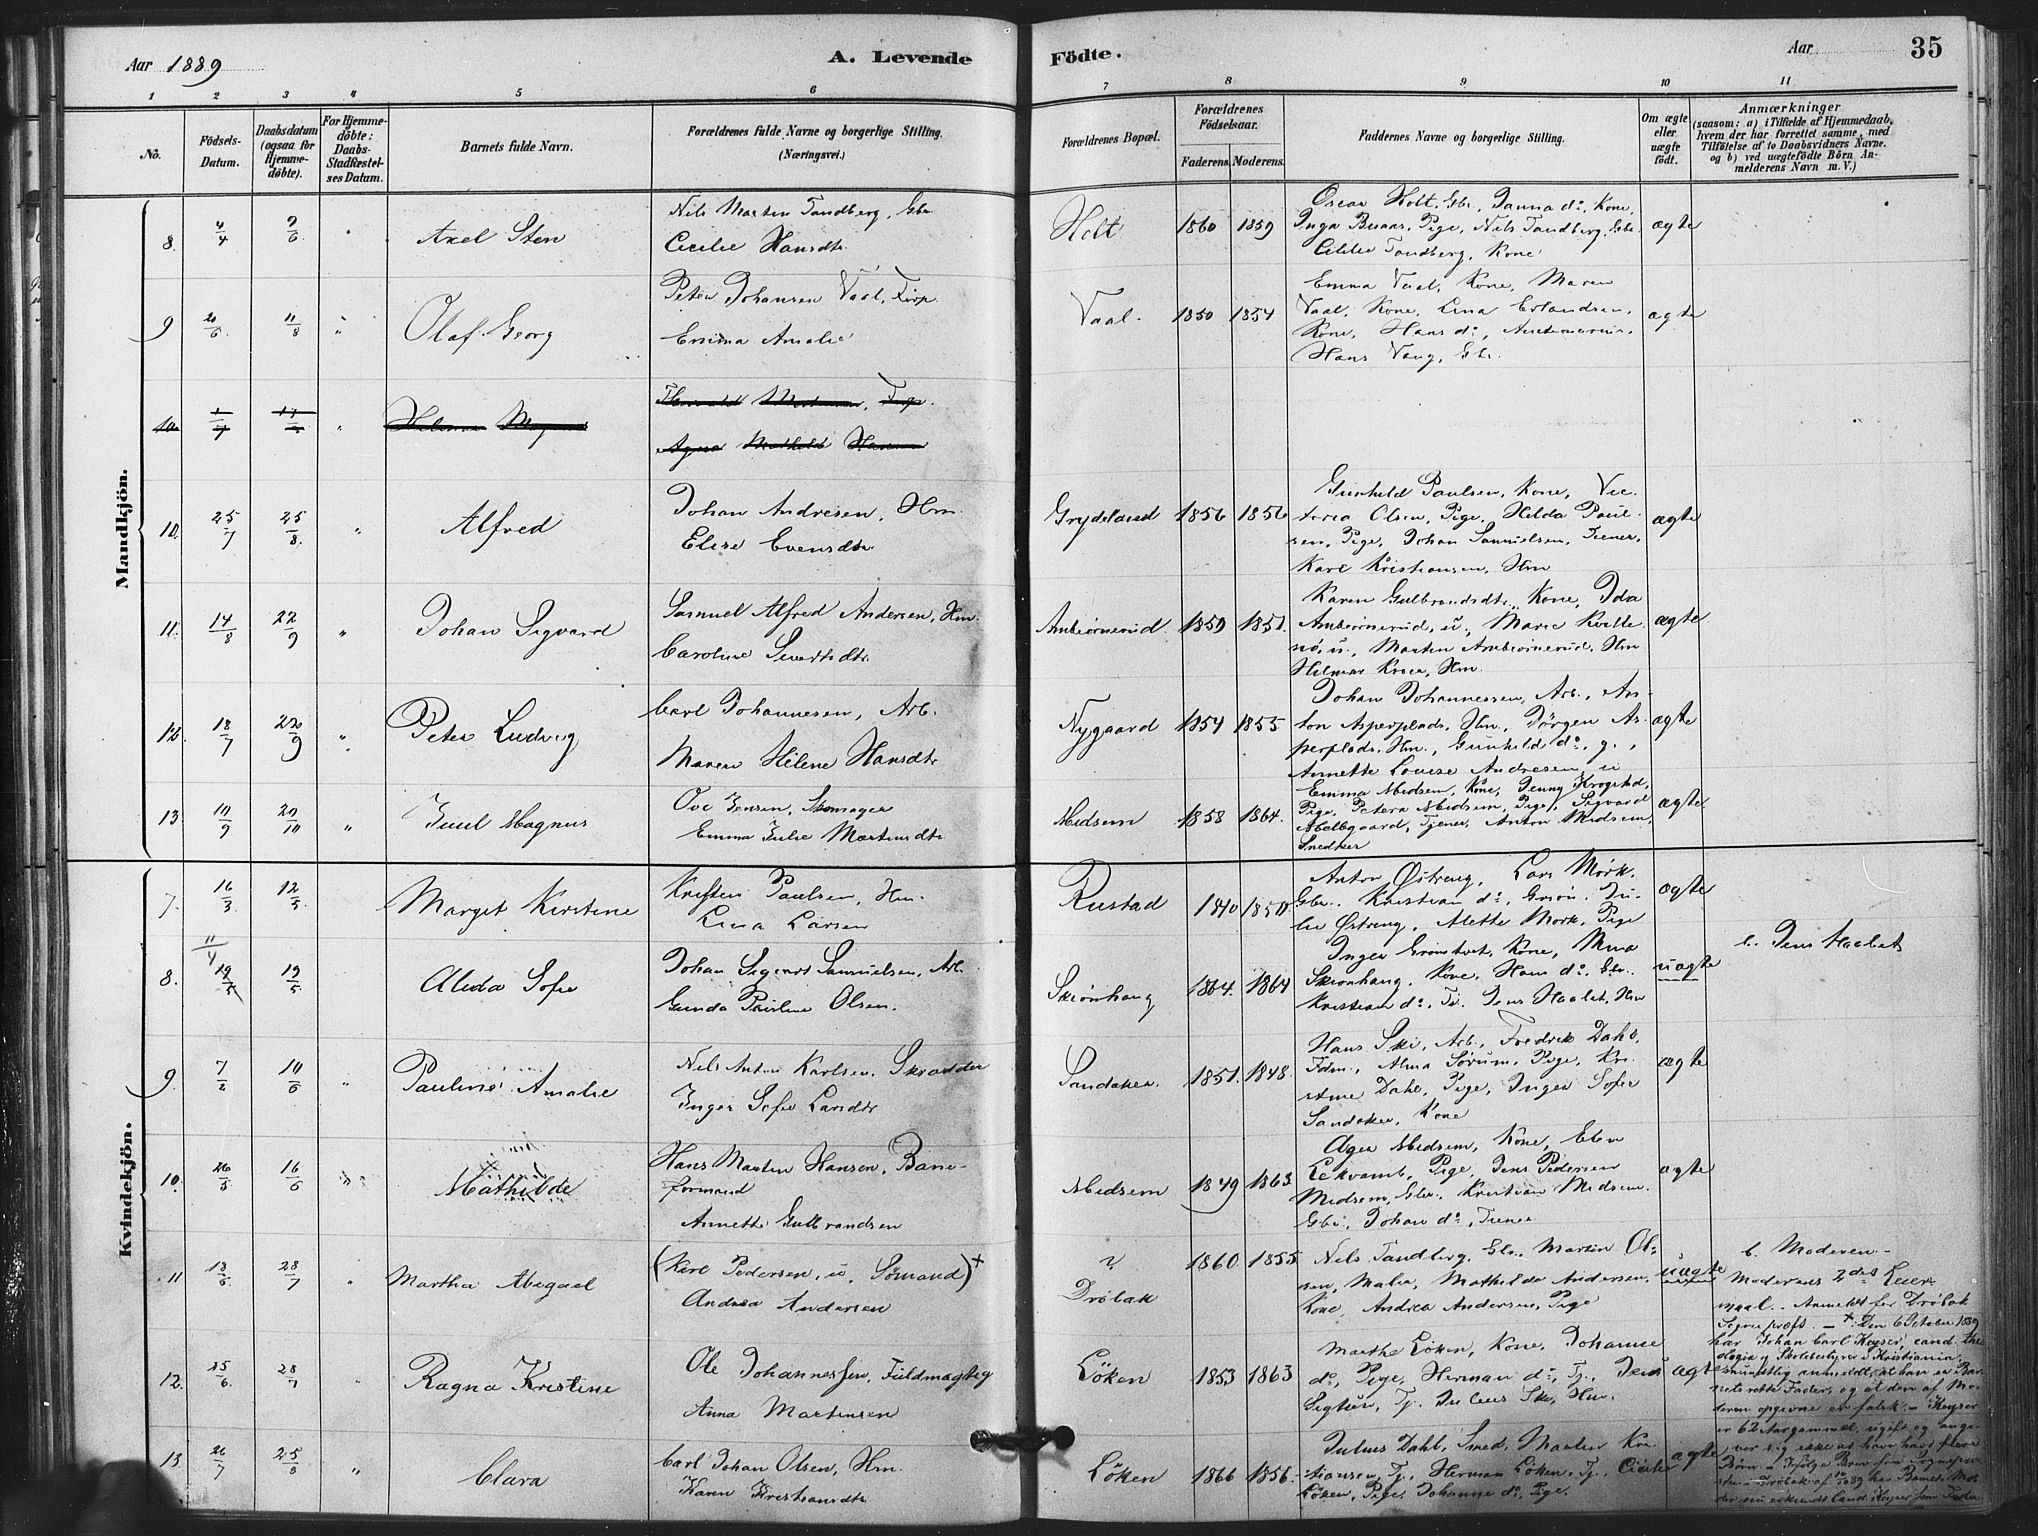 Aar 1889
A. Levende
Födte.
Aar
35
1 2 3 4 5 6 7 8 9 10 11
No.
Födsels-
Datum.
Daabsdatum
(ogsaa for
Hjemme-
döbte).
For Hjemme-
döbte:
Daabs-
Stadfæstel-
ses Datum.
Barnets fulde Navn.
Forældrenes fulde Navne og borgerlige Stilling.
(Næringsvei.)
Forældrenes Bopæl.
Forældrenes
Födselsaar.
Faderens. Moderens.
Faddernes Navne og borgerlige Stilling.
Om ægte
eller
uægte
födt.
Anmærkninger
(saasom: a) i Tilfælde af Hjemmedaab,
hvem der har forrettet samme, med
Tilföielse af to Daabsvidners Navne.
og b) ved uægtefödte Börn An-
melderens Navn m. V.)
Mandkjön.
8. 4/4 9/6 " Axel Sten
Nils Martin Tandberg, Gbr.
Cecilie Hansdtr
Holt 1860 1859
Oscar Holt, Gbr., Janna do, Kone,
Inga Buaas, Pige, Nils Tandberg, Gbr.
Cecilie Tandberg, Kone
ægte
9 20/6 11/8 " Olaf Georg
Peter Johansen Vaal, Tirp.
Emma Amalie
Vaal. 1850 1854
Emma Vaal, Kone, Maren
Vaal, Kone, Lina Erlandsen,
Kone, Hans do,
Hans Vaug, Gbr.
ægte
10 "
10. 25/7 25/8. " Alfred
Johan Andresen, Hm
Elise Evensdtr.
Grydeland 1856 1856
Gunhild Paulsen, Kone, Vic-
toria Olsen, Pige, Hilda Paul-
sen, Pige, Johan Samuelsen, Tiener,
Karl Kristiansen, Hm
ægte
11. 14/8 22/9 " Johan Sigvard
Samuel Alfred Andersen, Hm.
Caroline Sivertsdtr
Ambiörnerud. 1859 1851.
Karen Gulbrandsdtr, Kone, Ida
Ambiörnerud, u., Marie Kvelle
nö, u., Martin Ambiörnerud, Hm
Hilmar Kroer, Hm.
ægte
12. 18/7 22/9 " Peter Ludvig
Carl Johannesen, Arb.
Maren Helene Hansdtr
Nygaard 1854 1855
Johan Johannessen, Arb., An-
ton Asperplads, Hm., Jörgen As-
perplads, Hm., Gunhild do, g.,
Annette Louise Andresen u
ægte
13 10/9 20/10 " Juul Magnus
Ove Jensen, Skomager
Emma Julie Martinsdtr
Midsem 1858 1864.
Emma Midsem, Kone, Jenny Krogstad,
Pige, Petera Midsem, Pige, Sigvard
Abelsgaard, Tjener, Anton Midsem,
Snedker
ægte
Kvindekjön.
7. 16/3 12/5 Marget Kirstine
Kristen Paulsen, Hm.
Lina Larsen
Rustad 1840 1850.
Anton Østreng, Lars Mork,
Gbr. Kristian do, Ju-
lie Østreng, Alette Mork, Pige
ægte
11/4
8. 19/5 19/5 Alida Sofie
Johan Sigvart Samuelsen, Arb.
Gunda Pauline Olsen.
Skiönhaug 1864. 1864
Inger Gröntvet, Kone, Mina
Skiönhaug, Kone, Hans do, Gbr.
Kristian do, Tj. Jens Haslet, Hm
uægte
b. Jens Haslet
9. 7/2 10/6 " Pauline Amalie
Nils Anton Karlsen, Skrædder
Inger Sofie Larsdtr
Sandaker. 1851. 1848.
Hans Ski, Arb., Fredrik Dahl,
Fdm., Alma Sörum, Pige, Kri-
stine Dahl, Pige, Inger Sofie
Sandaker, Kone
ægte
10. 26/3 16/6 " Mathilde
Hans Martin Hansen, Bane-
formand
Annette Gulbrandsen
Midsem 1849 1863
Agea Midsem, Kone, Elen
Eekvamb, Pige, Jens Pedersen
Midsem, Gbr., Kristian Midsem.
Gbr., Johan do, Tiener
ægte
11 18/5 28/7 " Martha Abigael
(Karl Pedersen, u. Sömand)+
Andrea Andersen
?
Dröbak
1860 1855
Nils Tandberg, Gbr., Martin Ol-
sen, Maler, Mathilda Andersen,
Kone, Andrea Andersen, Pige
uægte
b. Moderen -
Moderens 2det Leier-
maal. - Anmeldt for Dröbak
Sognepræst. - + Den 6 October 1889
har Johan Carl Keyser, cand. the-
ologia og Skolebestyrer i Kristiania,
mundtlig anmeldt, at han er Bar-
nets rette Fader, og at den af Mo-
deren opgivne er falsk. - Keyser
er 62 Aar gammel, ugift og angi-
ver sig ikke at have havt flere
Börn. - Ifölge Brev fra Sognepræ-
sten i Dröbak af 1889 har Barnets Mo-
der nu erkjendt Cand. Keyser som Fader
12. 15/6 28/7 " Ragna Kristine
Ole Johannessen, Fuldmægtig
Anna Martinsen
Löken 1853 1863
Marthe Löken, Kone, Johanne
do, Pige, Herman do, Tj., Jens
Sigtun, Tj. Julius Ski, Hm.
ægte
13 26/7 25/8 " Clara
Carl Johan Olsen, Hm.
Karen Kristiansdtr
Löken 1866 1856.
Julius Dahl, Smed, Martin Kri-
stiansen, Tj., Herman Löken, Tj., Cecilie
Löken, Pige, Johanne do, Pige.
ægte